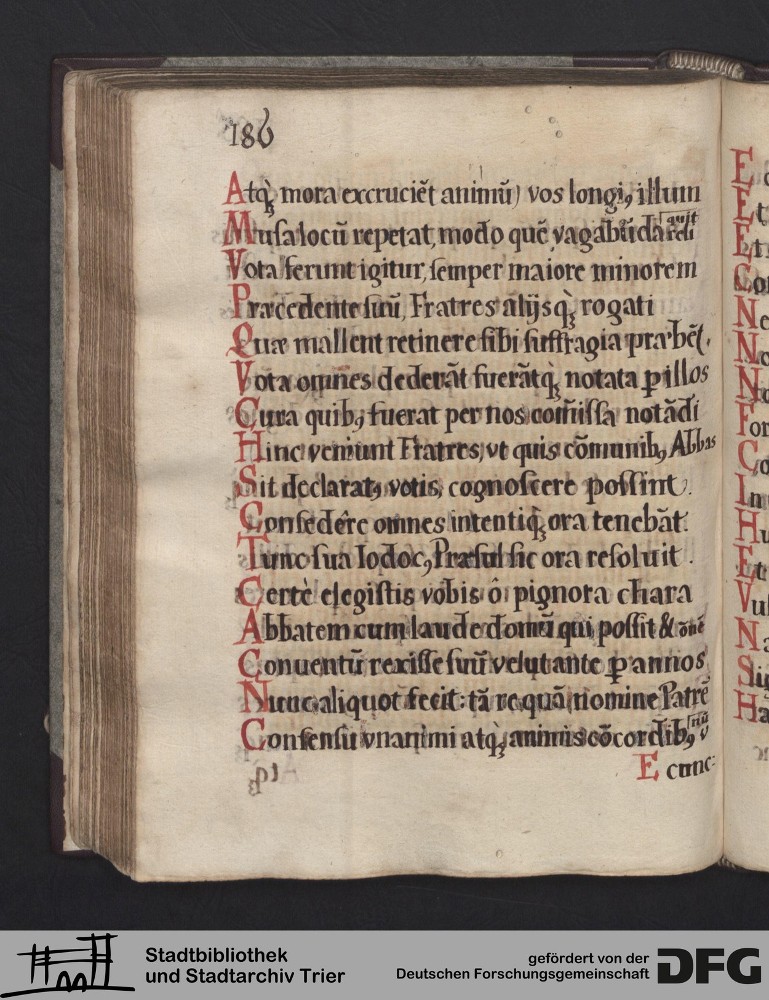 186
Atq; mora excruciēt animū) vos longi9 illum
Musa locū repetat, modo quē vagabūda reliquit
Vota ferunt igitur, semper maiore minorem
Præcedente suū, Fratres alijsq; rogati
Quæ mallent retinere sibi suffragia præbēt.
Vota omnes dederāt fuerātq; notata ꝑ illos
Cura quib9 fuerat per nos com̄issa notādi
Hinc veniunt Fratres, vt quis cōmunib9 Abbas
Sit declarat9 votis, cognoscere possint.
Consedêre omnes intentiq; ora tenebāt.
Tunc sua Iodoc9 Præsul sic ora resoluit.
Certè elegistis vobis ô pignora chara
Abbatem cum laude domū qui possit & om̄ē
Conuentū rexisse suū velut ante ꝑ annos
Nunc aliquot fecit: tā re quā nomine Patrē
Consensu vnanimi atq; animis cōcordib9 vnū
Ecunc:
Stadtbibliothek
und Stadtarchiv Trier
gefördert von der
Deutschen Forschungsgemeinschaft
DFG